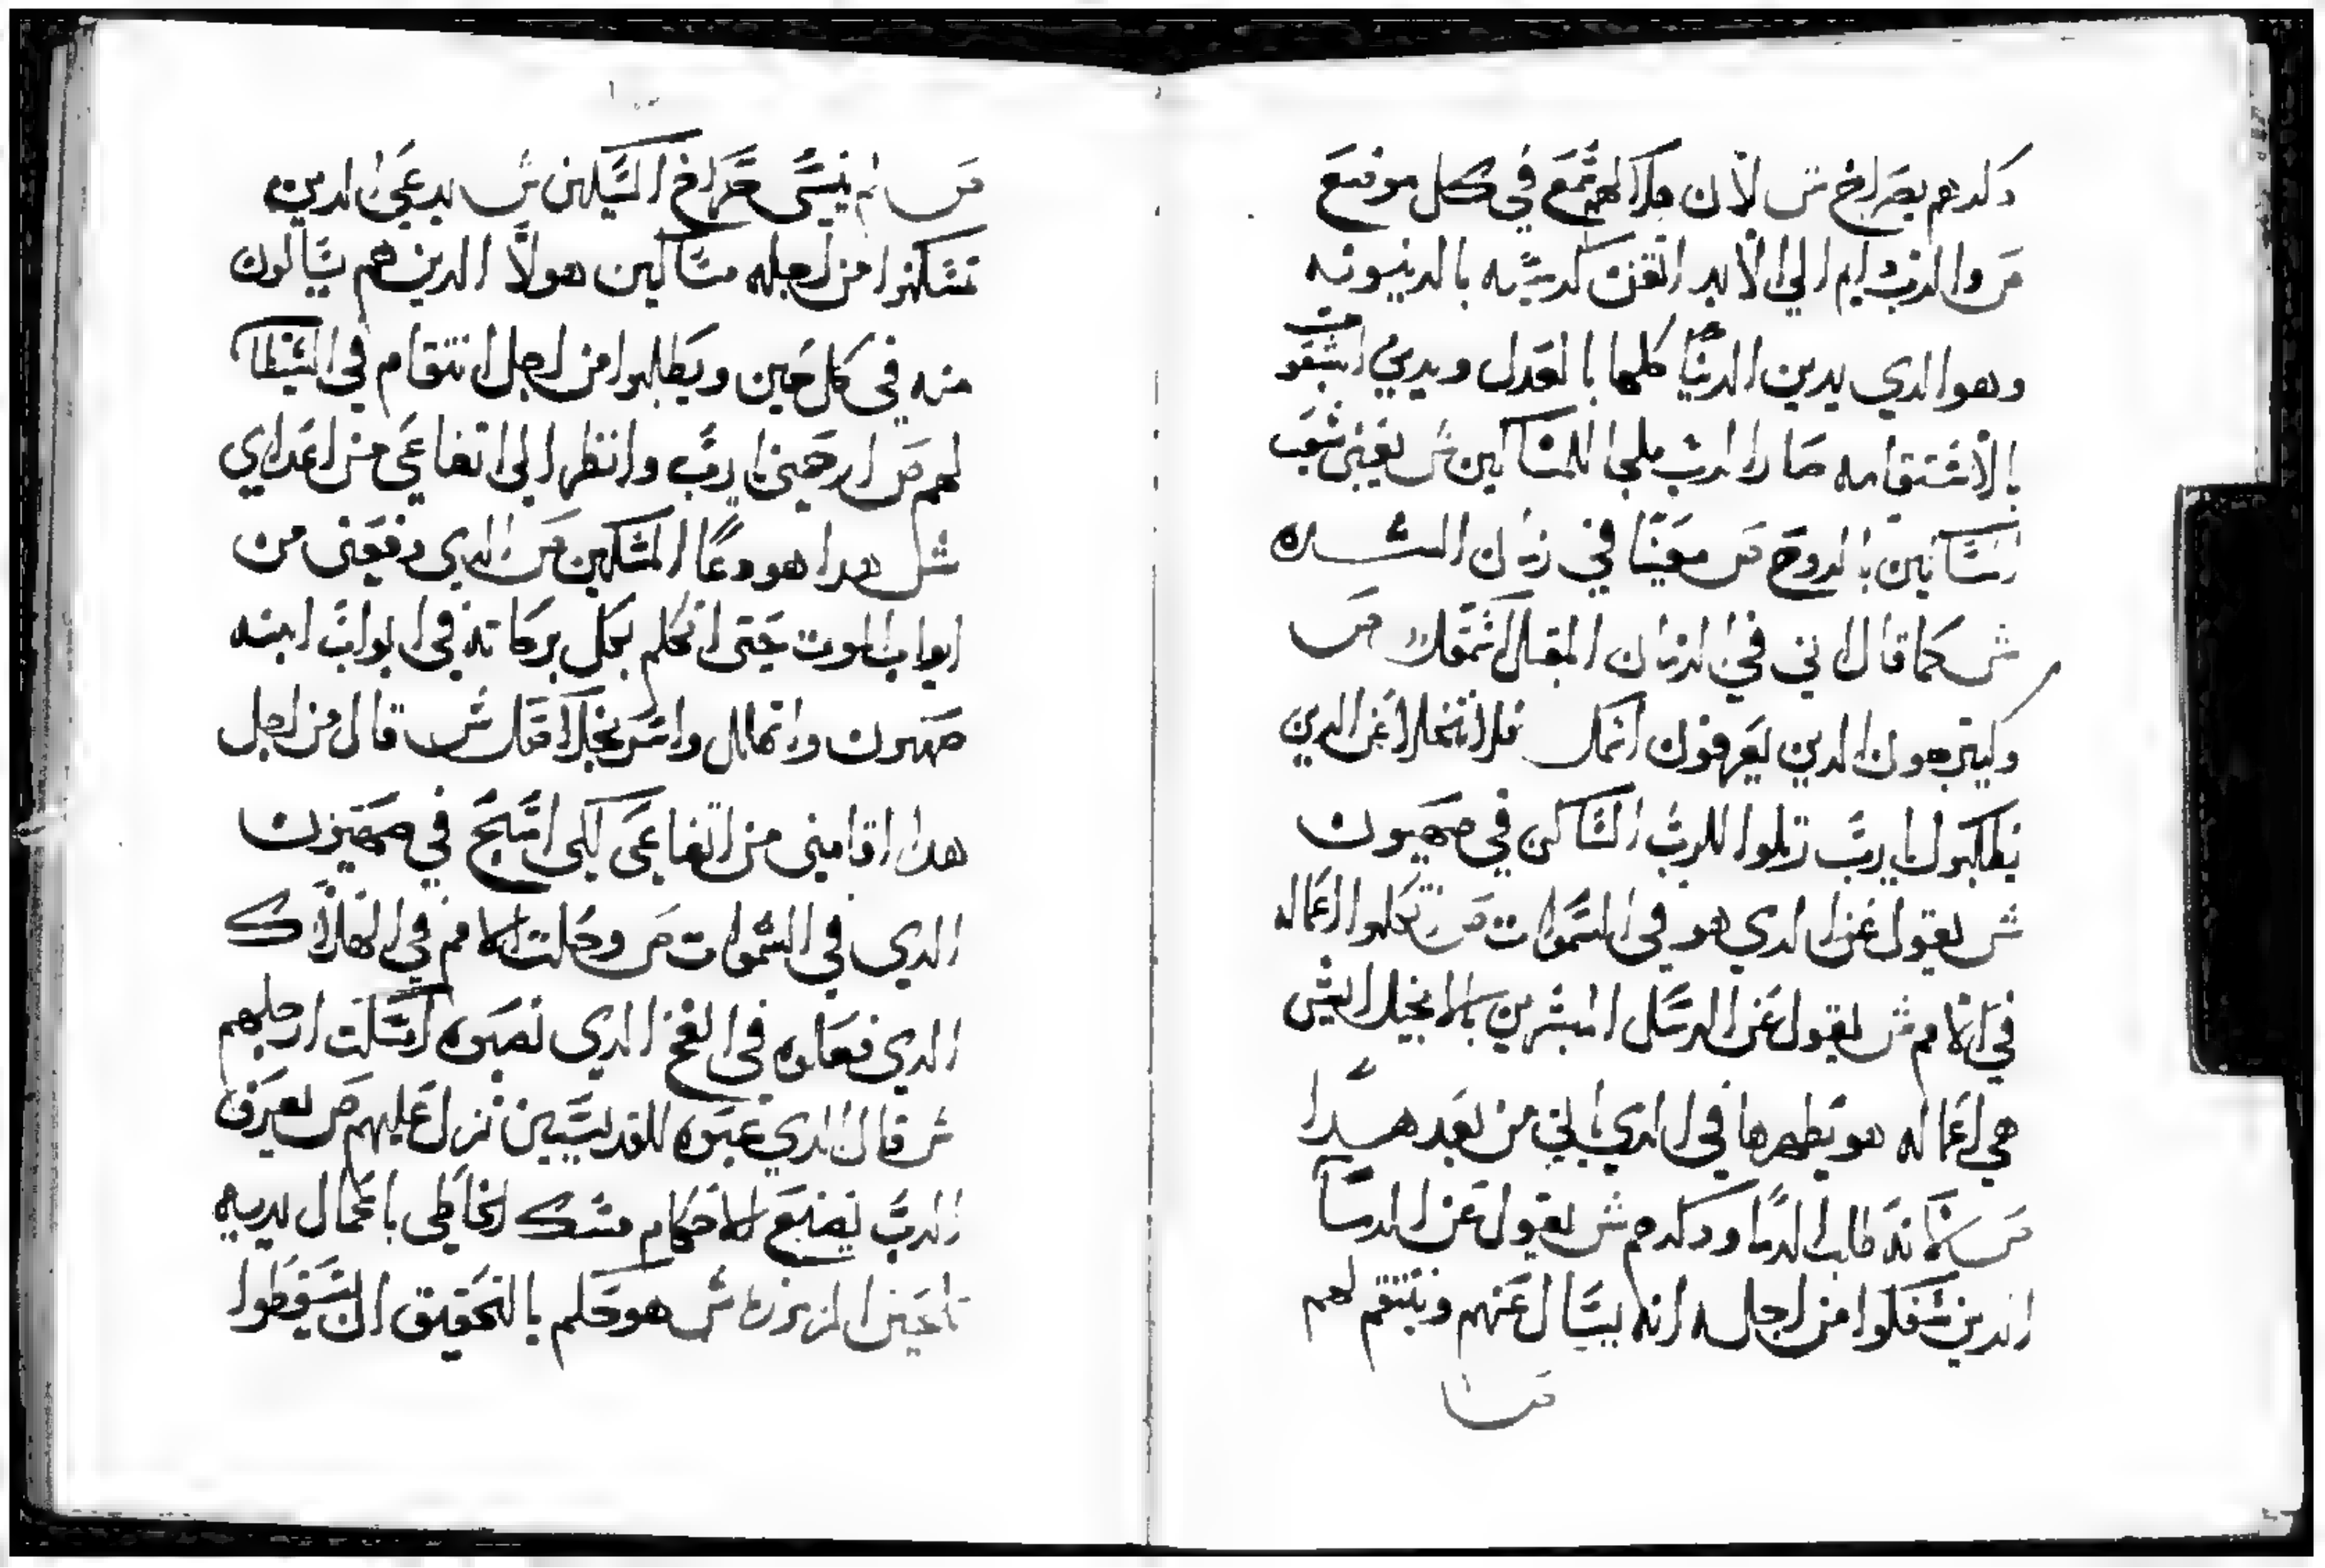 دكرهم بصراخ ش لان هلاكهم سمع في كل موضع
ص والرب دايم الي الابد اتقن كرسيه بالدينونه
وهوا الدي يدين الدنيا كلها بالعدل ويدين الشعوب
بالاستقامه صار الرب ملجا للمساكين ش يعني شعب
المساكين بالروح ص معينا في زمان الشده
ش كما قال اني في الزمان المقبل اسمعك ص
وليترجون الدين يعرفون اسمك فلا تتخلا عن الدين
يطلبوك يا رب رتلوا للرب الساكن في صهيون
ش يقول عن الدي هو في السموات ص تكلموا باعماله
في الامم ش يقول عن الرسل المبشرين بالانجيل
هي اعماله هو يظهرها في الدي ياتي من بعد هدا
ص لانه طالب الدما ودكرهم ش يقول عن الدما
الدين سفكوا من اجله انه يسال عنهم وينتقم لهم
ص لم ينسي صراخ المساكين ش يدعي الدين
تمسكنوا من اجله مساكين هولا الدين هم يسالون
منه في كل حين ويطلبوا من اجل انتقام في الشيطان
لهم ص ارحمني يا رب وانظر الي اتضاعي من اعداي
ش هدا هو دعا المسكين ص الدي رفعني من
ابواب الموت حتي اتكلم بكل بركاته في ابواب ابنه
صهيون واتهلل واسر بخلاصك ش قال من اجل
هدا اقامني من اتضاعي لكي اسبح في صهيون
الدي في السموات ص وحلت الامم في الهلاك
الدي فعلوه في الفخ الدي نصبوه امسكت ارجلهم
ش قال الدي عبوه للقديسين نزل عليهم ص يعرف
الرب يصنع الاحكام مسك الخاطي باعمال يديه
ش هو حكم بالتحقيق ان سقطوا